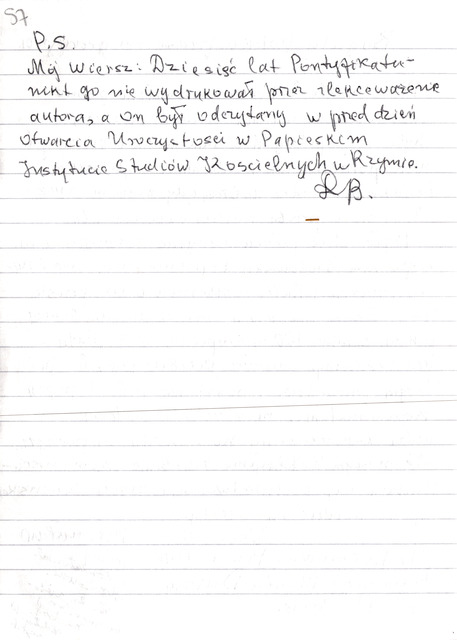 57
P.S.
Mój wiersz: Dziesięć lat Pontyfikatu-
nikt go nie wydrukował przez zlekceważenie
autora, a on był odczytany w przed dzień
otwarcia Uroczystości w Papieskim
Instytucie Studiów Kościelnych w Rzymie.
RB.